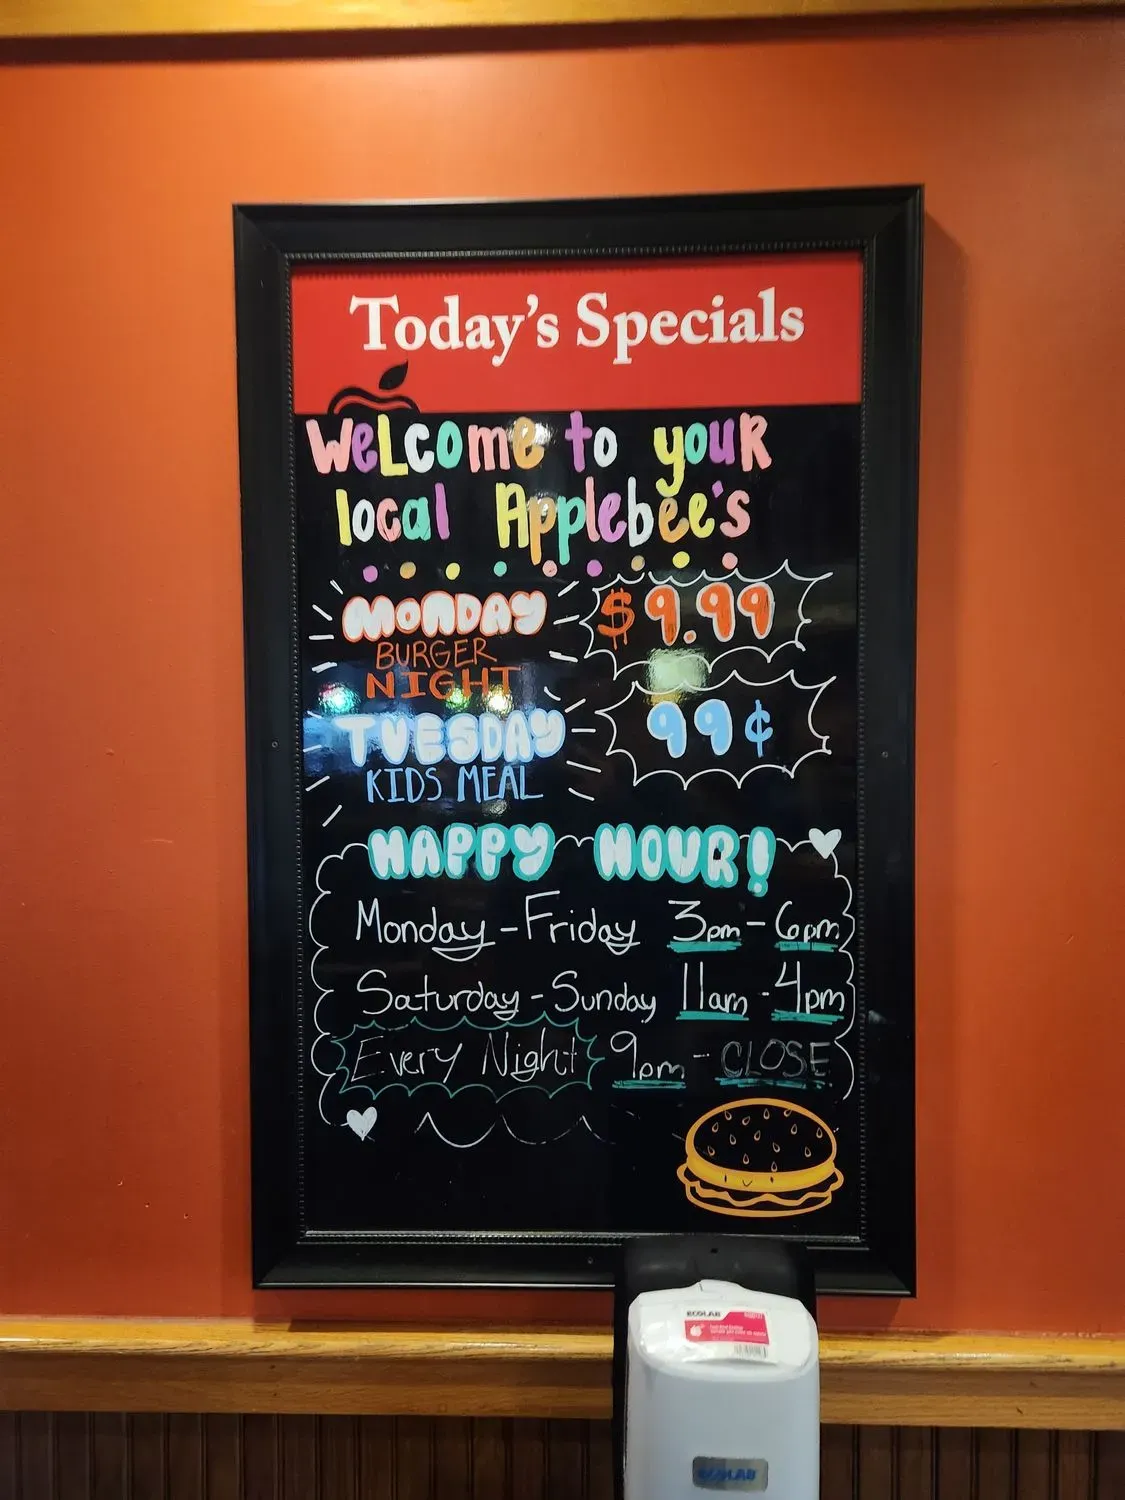 Today's Specials
WeLcome to youR
local Applebee's
MONDAY $9.99
BURGER
NIGHT
TUESDAY 99¢
KIDS MEAL
HAPPY HOUR!
Monday - Friday 3pm - 6pm
Saturday - Sunday 11am - 4pm
Every Night 9pm - CLOSE
ECOLAB
ECOLAB